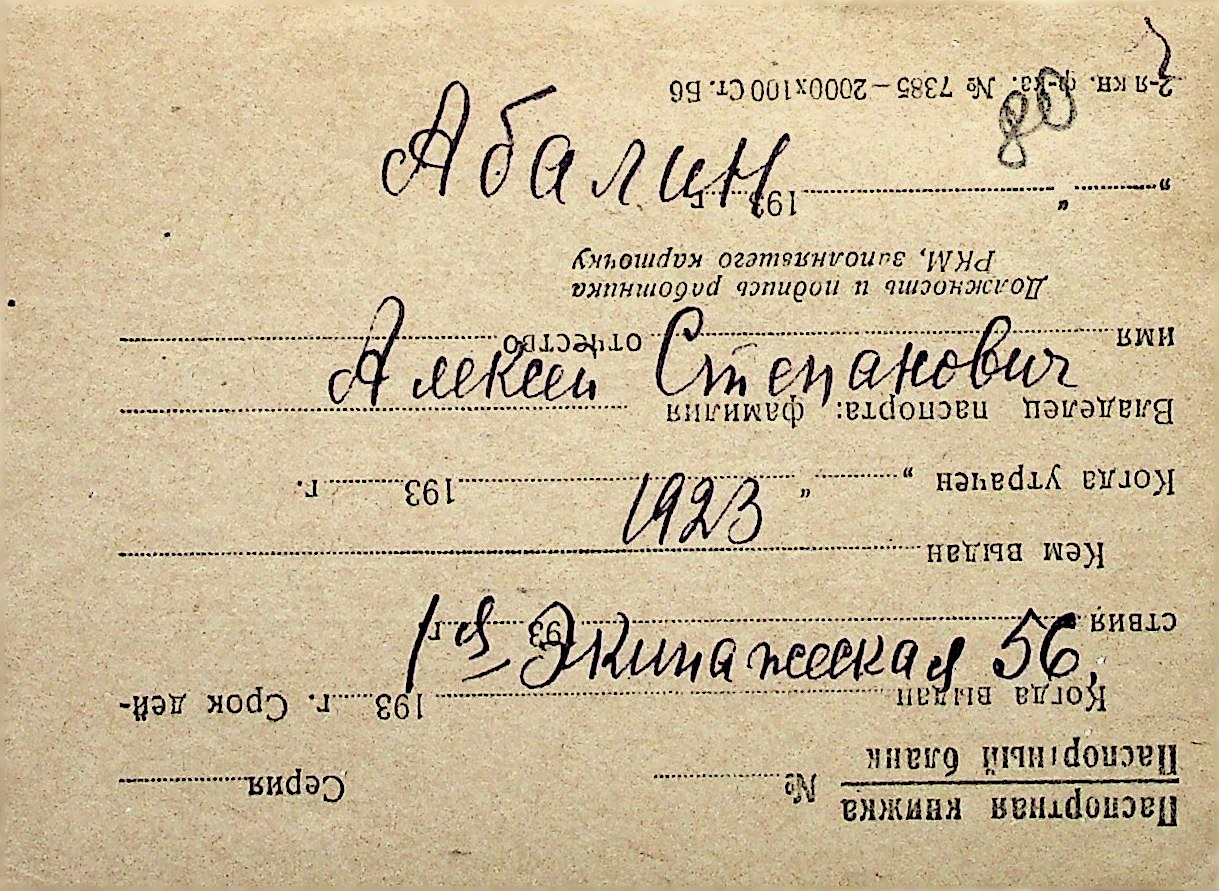 Абалин
Алексей Степанович
1923
1я Экипажеская 56,
80
Паспортная книжка
Паспортный бланк
№ Серия
Когда выдан 193 г. Срок дей-
ствия 193 г.
Кем выдан
Когда утрачен „ “ 193 г.
Владелец паспорта: фамилия
имя отчество
Должность и подпись работника
РКМ, заполнявшего карточку
„ “ 193 г.
2-я кн. ф-ка. № 7385—2000x100 Ст. Б6